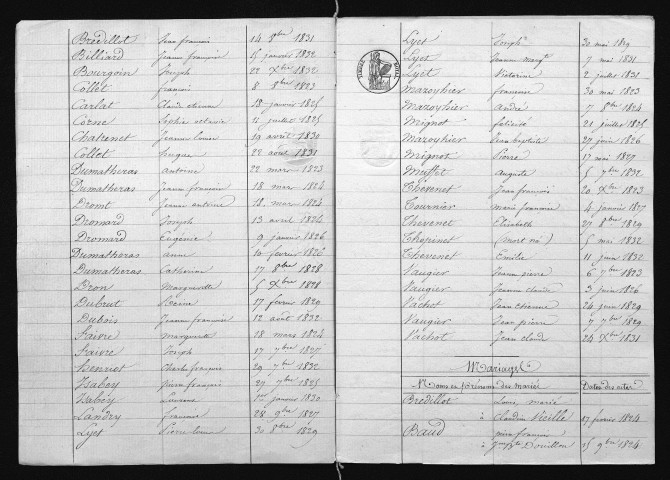 Bredillot Jean francois 14 8bre 1831
Billiard Jeanne françoise 15 janvier 1832
Bourgoin Joseph 22 Xbre 1832
Collet francois 8 8bre 1823
Carlat Claude etienne 18 janvier 1825
Corne Sophie octavie 21 juillet 1825
Chatenet Jeanne louise 19 avril 1830
Collet 22 aout 1831
Dumatheras Antoine 22 mars 1823
Dumatheras Jeanne françoise 18 mars 1824
Dromt antoine 18 mars 1824
Dromard Joseph 13 avril 1824
Dromard Eugénie 9 janvier 1826
Dumatheras anne 10 fevrier 1826
Dumatheras Catherine 17 8bre 1828
Dron Marguerite 5 Xbre 1828
Dubrut 17 fevrier 1829
Dubois Jeanne françoise 12 aout 1832
Faivre Marguerite 28 mars 1824
Faivre Joseph 17 7bre 1827
henriot Charles françois 29 7bre 1832
Isabey francois 29 7bre 1825
Isabey 1er janvier 1830
Landry francois 28 9bre 1827
Lyet Pierre louis 30 8bre 1829
Lyet Joseph 30 mai 1829
Lyet Jeanne margte 7 mai 1831
Lyet Victorine 2 juillet 1831
Mazoyhier francoise 30 mai 1823
Mazoyhier André 7 8bre 1824
Mignot félicité 21 juillet 1825
Mazoyhier Jean baptiste 27 juin 1826
Mignot Pierre 12 mai 1827
Muffet Auguste 5 7bre 1832
Thevenet Jean francois 20 Xbre 1823
Tournier Marie francoise 4 janvier 1827
Thevenet Elisabeth 27 8bre 1829
Thevenet (mort né) 5 mai 1832
Thevenet Emile 11 juin 1832
Vaugier Jeanne pierre 6 7bre 1823
Vaugier Jeanne claude 3 juin 1826
Vachot Jean etienne 24 juin 1829
Vaugier Jean pierre 7 7bre 1829
Vachot Jean claude 24 Xbre 1831
Mariages
Noms et prénoms des mariés Dates des actes
Bredillot Louis marie
à Claudine Vieille 17 fevrier 1824
Baud françois
à Douillon 15 9bre 1824